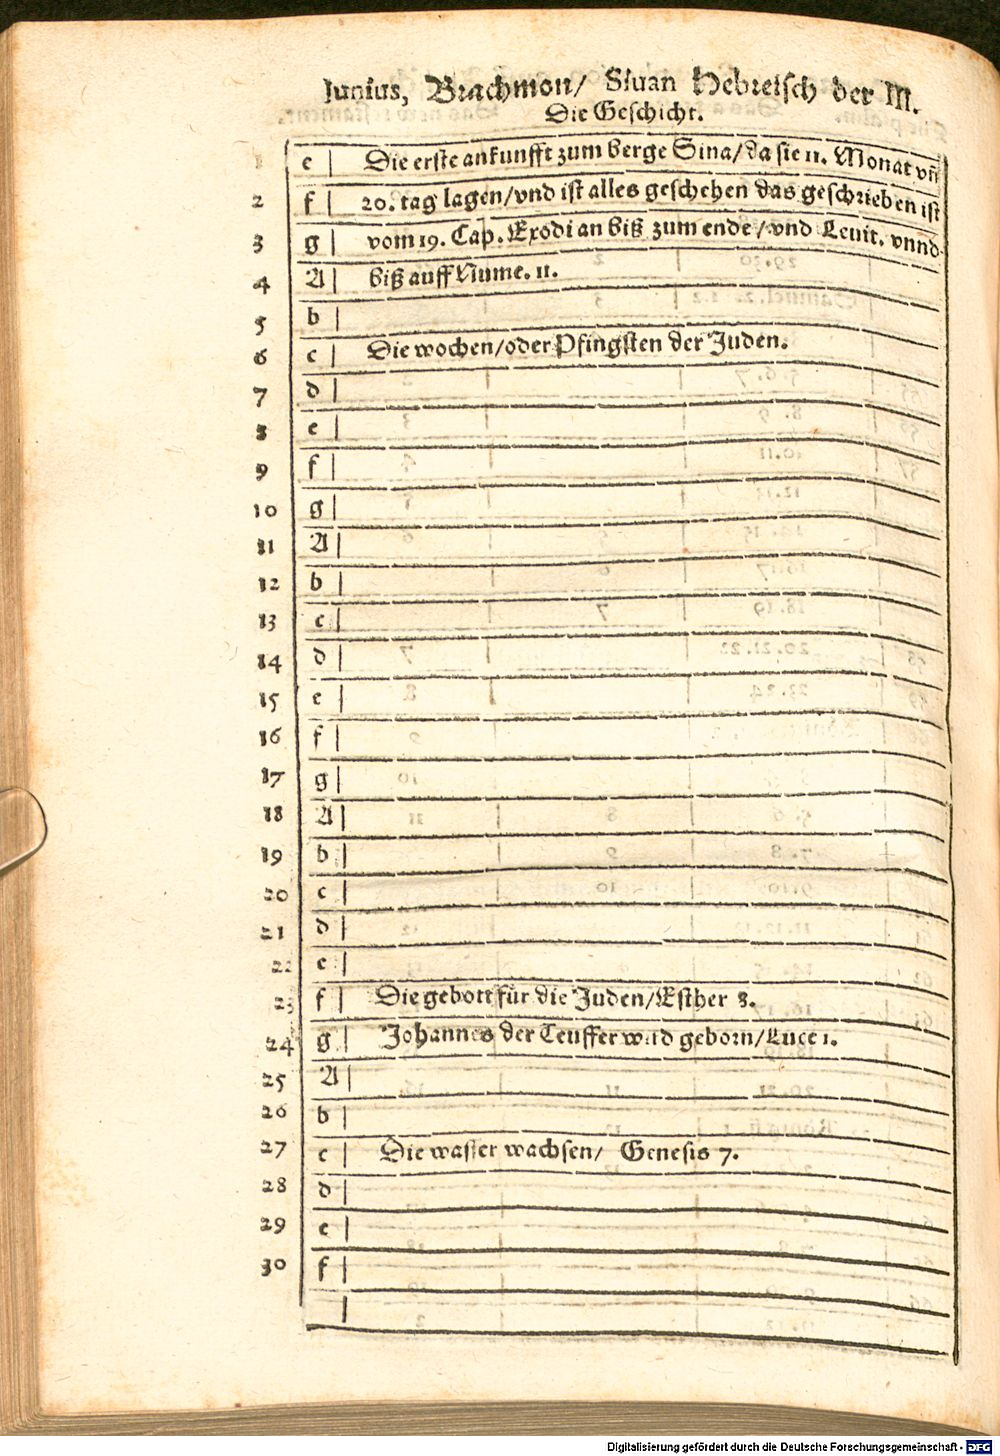 Iunius, Brachmon/ Siuan Hebreisch der III.
Die Geschicht.
1 e Die erste ankunfft zum berge Sina/da sie 11. Monat vñ
2 f 20. tag lagen/vnd ist alles geschehen das geschrieben ist
3 g vom 19. Cap. Exodi an biß zum ende/vnd Leuit. vnnd
4 A biß auff Nume. 11.
5 b
6 c Die wochen/oder Pfingsten der Juden.
7 d
8 e
9 f
10 g
11 A
12 b
13 c
14 d
15 e
16 f
17 g
18 A
19 b
20 c
21 d
22 e
23 f Die gebott für die Juden/Esther 8.
24 g Johannes der Teuffer wird geborn/Luce 1.
25 A
26 b
27 c Die wasser wachsen/ Genesis 7.
28 d
29 e
30 f
Digitalisierung gefördert durch die Deutsche Forschungsgemeinschaft - DFG